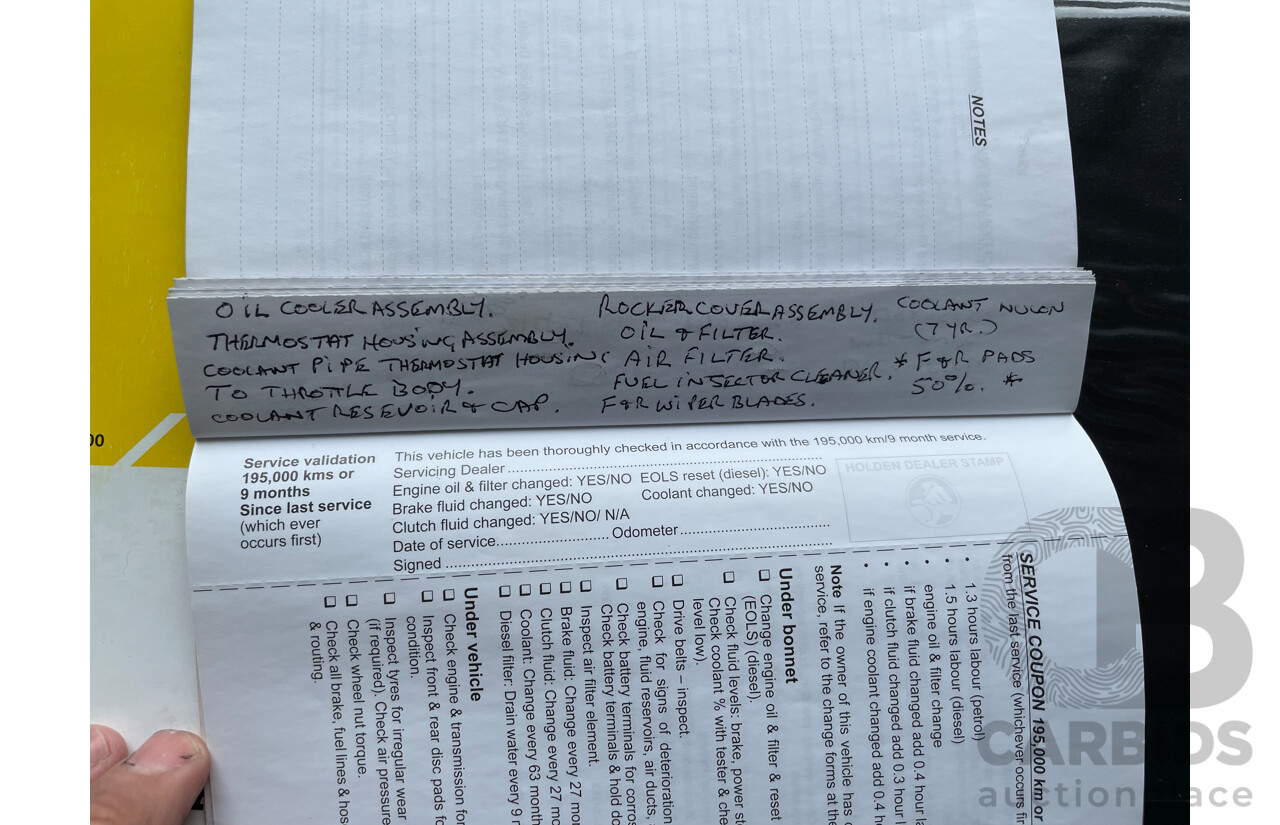 NOTES
OIL COOLER ASSEMBLY.
THERMOSTAT HOUSING ASSEMBLY.
COOLANT PIPE THERMOSTAT HOUSING
TO THROTTLE BODY.
COOLANT RESEVOIR & CAP.
ROCKER COVER ASSEMBLY.
OIL & FILTER.
AIR FILTER.
FUEL INJECTOR CLEANER.
F&R WIPER BLADES.
COOLANT NULON
(7 YR.)
* F&R PADS
50%. *
00
Service validation
195,000 kms or
9 months
Since last service
(which ever
occurs first)
This vehicle has been thoroughly checked in accordance with the 195,000 km/9 month service.
Servicing Dealer
Engine oil & filter changed: YES/NO EOLS reset (diesel): YES/NO
Brake fluid changed: YES/NO Coolant changed: YES/NO
Clutch fluid changed: YES/NO/ N/A
Date of service Odometer
Signed
HOLDEN DEALER STAMP
SERVICE COUPON 195,000 km or
from the last service (whichever occurs fir
• 1.3 hours labour (petrol)
• 1.5 hours labour (diesel)
• engine oil & filter change
• if brake fluid changed add 0.4 hour la
• if clutch fluid changed add 0.3 hour l
• if engine coolant changed add 0.4 h
Note If the owner of this vehicle has
service, refer to the change forms at the
Under bonnet
❑ Change engine oil & filter & reset
(EOLS) (diesel).
❑ Check fluid levels: brake, power st
Check coolant % with tester & che
level low).
❑ Drive belts – inspect.
❑ Check for signs of deterioration
engine, fluid reservoirs, air ducts,
❑ Check battery terminals for corros
Check battery terminals & hold do
❑ Inspect air filter element.
❑ Brake fluid: Change every 27 mon
❑ Clutch fluid: Change every 27 mo
❑ Coolant: Change every 63 month
❑ Diesel filter: Drain water every 9 m
Under vehicle
❑ Check engine & transmission for
❑ Inspect front & rear disc pads fo
condition.
❑ Inspect tyres for irregular wear
(if required). Check air pressure
❑ Check wheel nut torque.
❑ Check all brake, fuel lines & hose
& routing.
CARBIDS
auction place